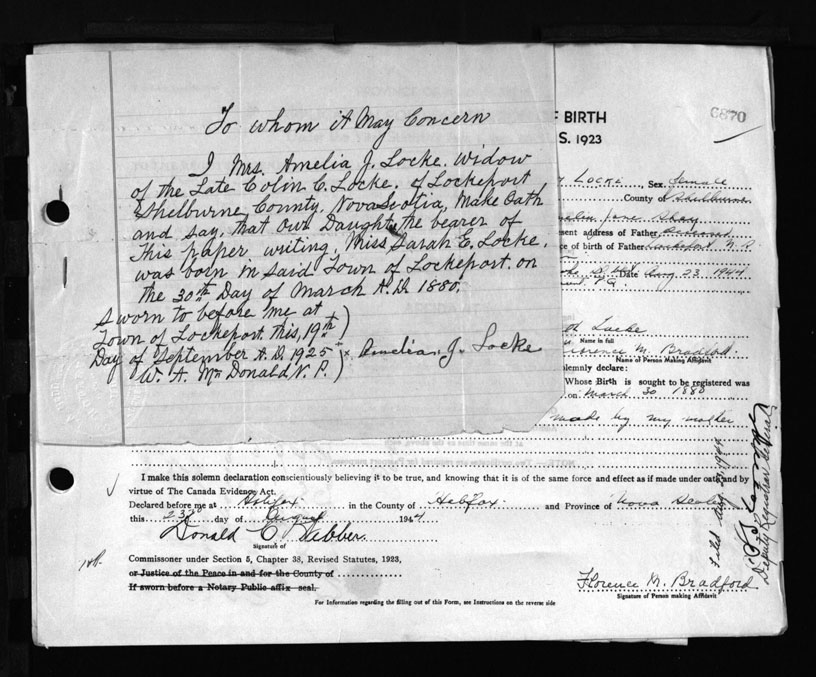 To whom it May Concern
I Mrs. Amelia J. Locke. Widow
of the Late Colin C. Locke. of Lockeport
Shelburne County Nova Scotia, Make Oath
and say, that our Daughter the bearer of
This paper writing, Miss Sarah E. Locke,
was born in said Town of Lockeport. on
the 30th Day of March A.D. 1880.
Sworn to before me at
Town of Lockeport. this, 19th
Day of September A.D. 1925
W. A. McDonald N. P.
x Amelia. J. Locke
F BIRTH
S. 1923
6870
Locke, Sex female
County Shelburne
Jane
esent address of Father Deceased
ce of birth of Father Lockeport N.S.
Date Aug 23 1944
P.Q.
Locke
Name in full
Florence M. Bradford.
Name of Person Making Affidavit
olemnly declare:
Whose Birth is sought to be registered was
on March 30 1880
made by my mother
I make this solemn declaration conscientiously believing it to be true, and knowing that it is of the same force and effect as if made under oath and by
virtue of The Canada Evidence Act.
Declared before me at Halifax in the County of Halifax and Province of Nova Scotia
this 23rd day of August 1944
Donald C. Webber
Signature of
Commissioner under Section 5, Chapter 38, Revised Statutes, 1923,
or Justice of the Peace in and for the County of
If sworn before a Notary Public affix seal.
Florence M. Bradford
Signature of Person making Affidavit
For Information regarding the filling out of this Form, see Instructions on the reverse side
Filed Aug. 23, 1944
Deputy Registrar General